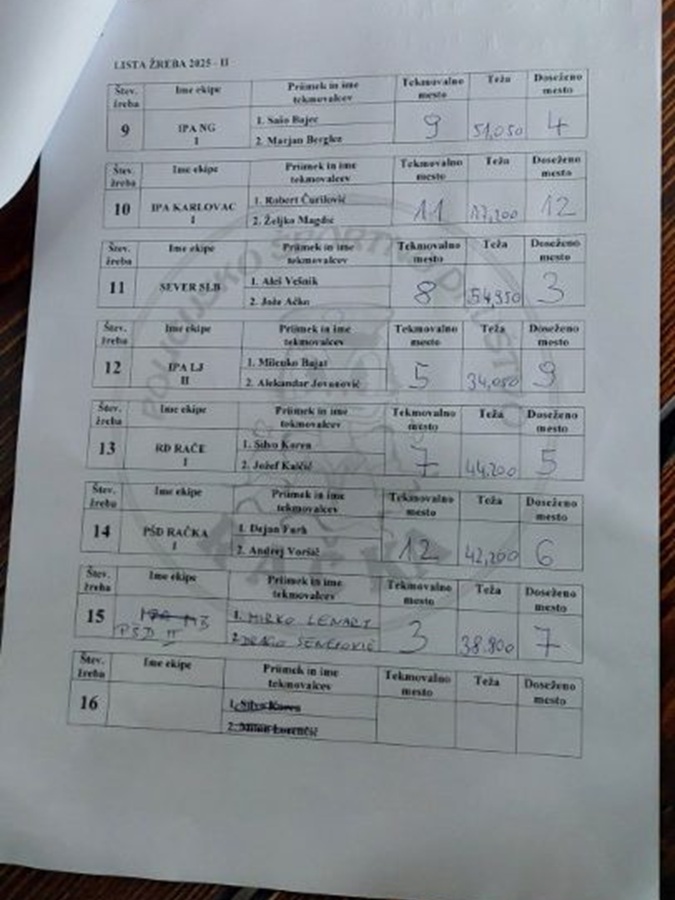 LISTA ŽREBA 2025 - II
Štev. žreba Ime ekipe Priimek in ime tekmovalcev Tekmovalno mesto Teža Doseženo mesto
9 IPA NG I 1. Sašo Bajec 9 51,050 4
2. Marjan Berglez
Štev. žreba Ime ekipe Priimek in ime tekmovalcev Tekmovalno mesto Teža Doseženo mesto
10 IPA KARLOVAC I 1. Robert Čurilović 11 17,200 12
2. Željko Magdić
Štev. žreba Ime ekipe Priimek in ime tekmovalcev Tekmovalno mesto Teža Doseženo mesto
11 SEVER SLB 1. Aleš Vešnik 8 54,350 3
2. Jože Ačko
Štev. žreba Ime ekipe Priimek in ime tekmovalcev Tekmovalno mesto Teža Doseženo mesto
12 IPA LJ II 1. Milenko Bajat 5 34,050 9
2. Aleksandar Jovanović
Štev. žreba Ime ekipe Priimek in ime tekmovalcev Tekmovalno mesto Teža Doseženo mesto
13 RD RAČE I 1. Silvo Koren 7 44,200 5
2. Jožef
Štev. žreba Ime ekipe Priimek in ime tekmovalcev Tekmovalno mesto Teža Doseženo mesto
14 PŠD RAČKA I 1. Dejan 12 42,200 6
2. Andrej Voršič
Štev. žreba Ime ekipe Priimek in ime tekmovalcev Tekmovalno mesto Teža Doseženo mesto
15 MB PŠD II 1. MIRKO LENART 3 38.800 7
2. DRAGO
Štev. žreba Ime ekipe Priimek in ime tekmovalcev Tekmovalno mesto Teža Doseženo mesto
16 1. Silvo Koren
2. Milan Lorenčič
POLICIJSKO ŠPORTNO DRUŠTVO
RAČKA